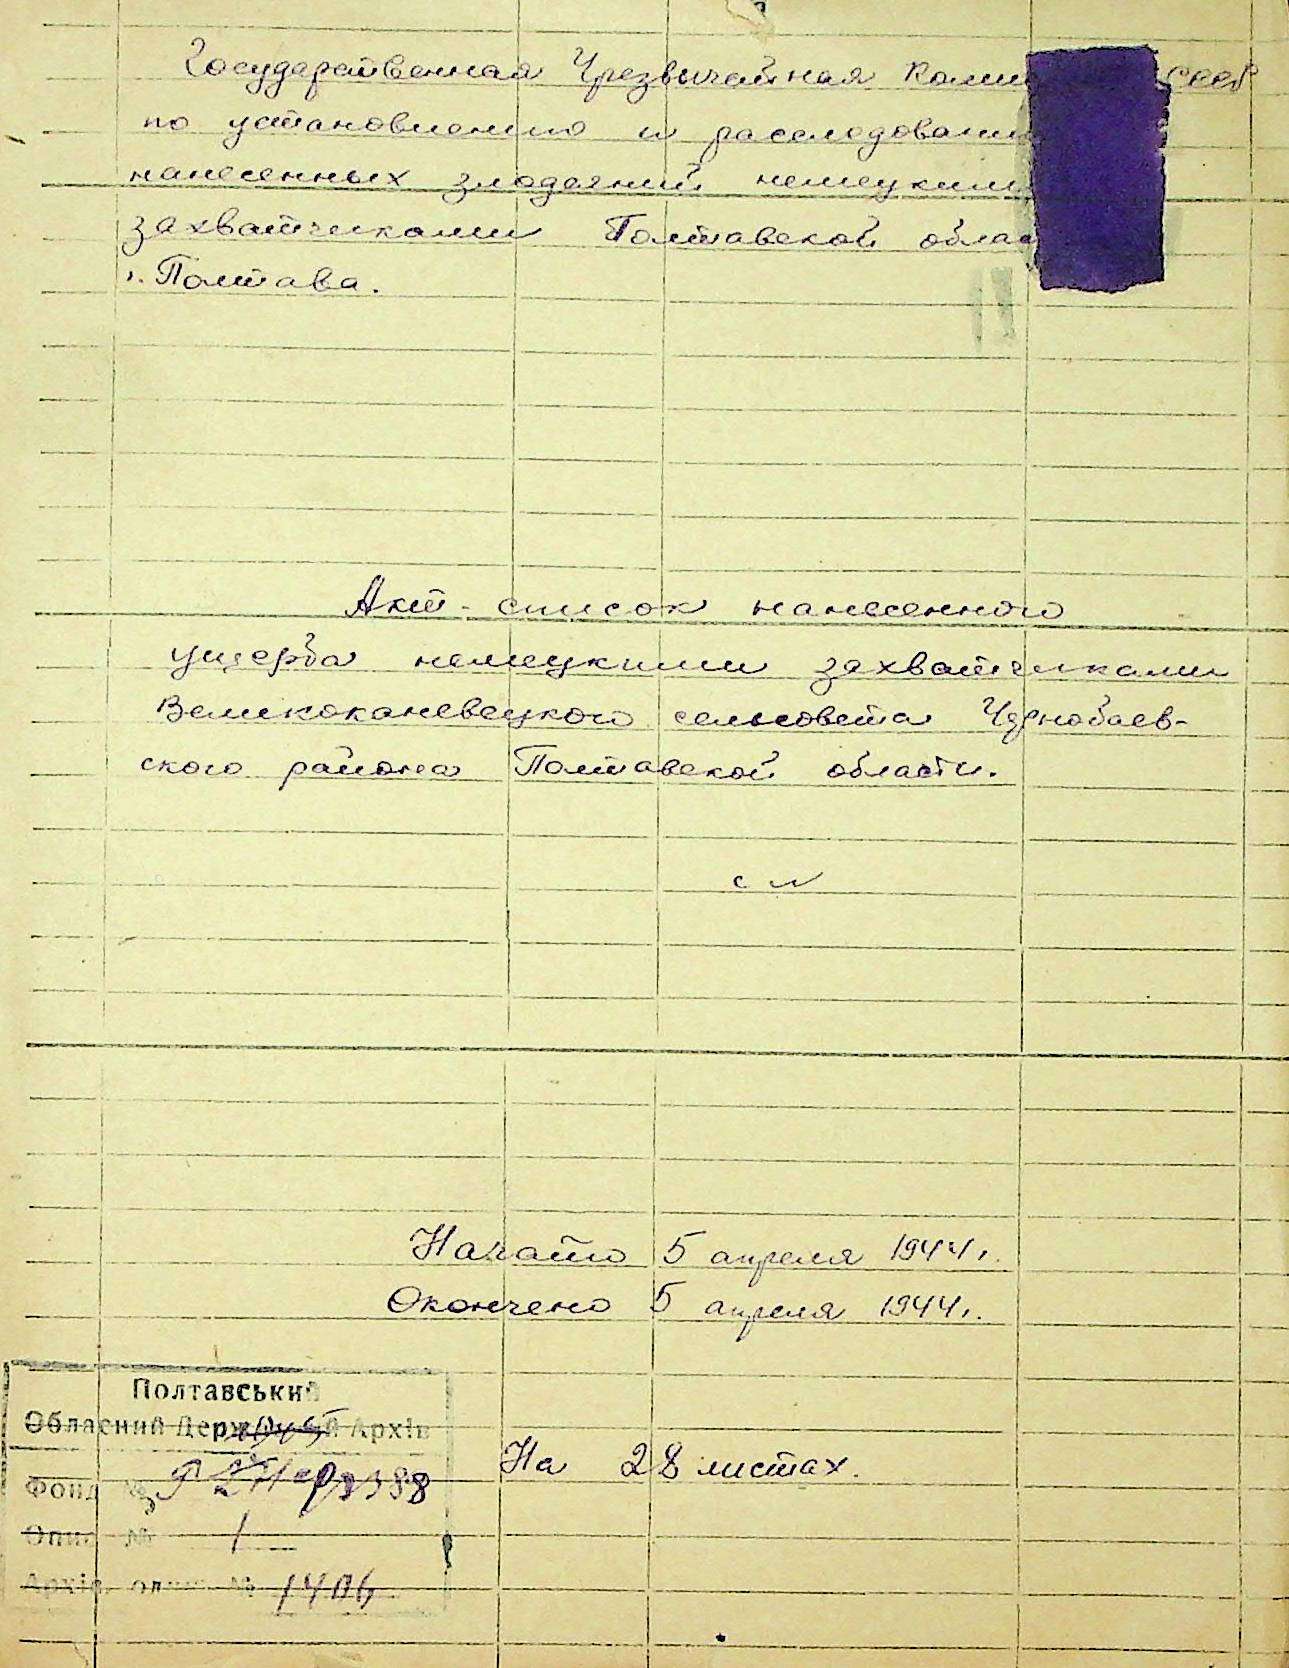 Государственная Чрезвычайная Коми СССР
по установлению и расследовани
нанесенных злодеяний немецкими
захватчиками Полтавской облас
г. Полтава.
Акт-список нанесенного
ущерба немецкими захватчиками
Великоканевецкого сельсовета Чернобаев-
ского района Полтавской области.
Начато 5 апреля 1944 г.
Окончено 5 апреля 1944 г.
На 28 листах.
Полтавський
Обласний Державний Архів
Фонд № 3388
Опис № 1
Архів. один. № 1406